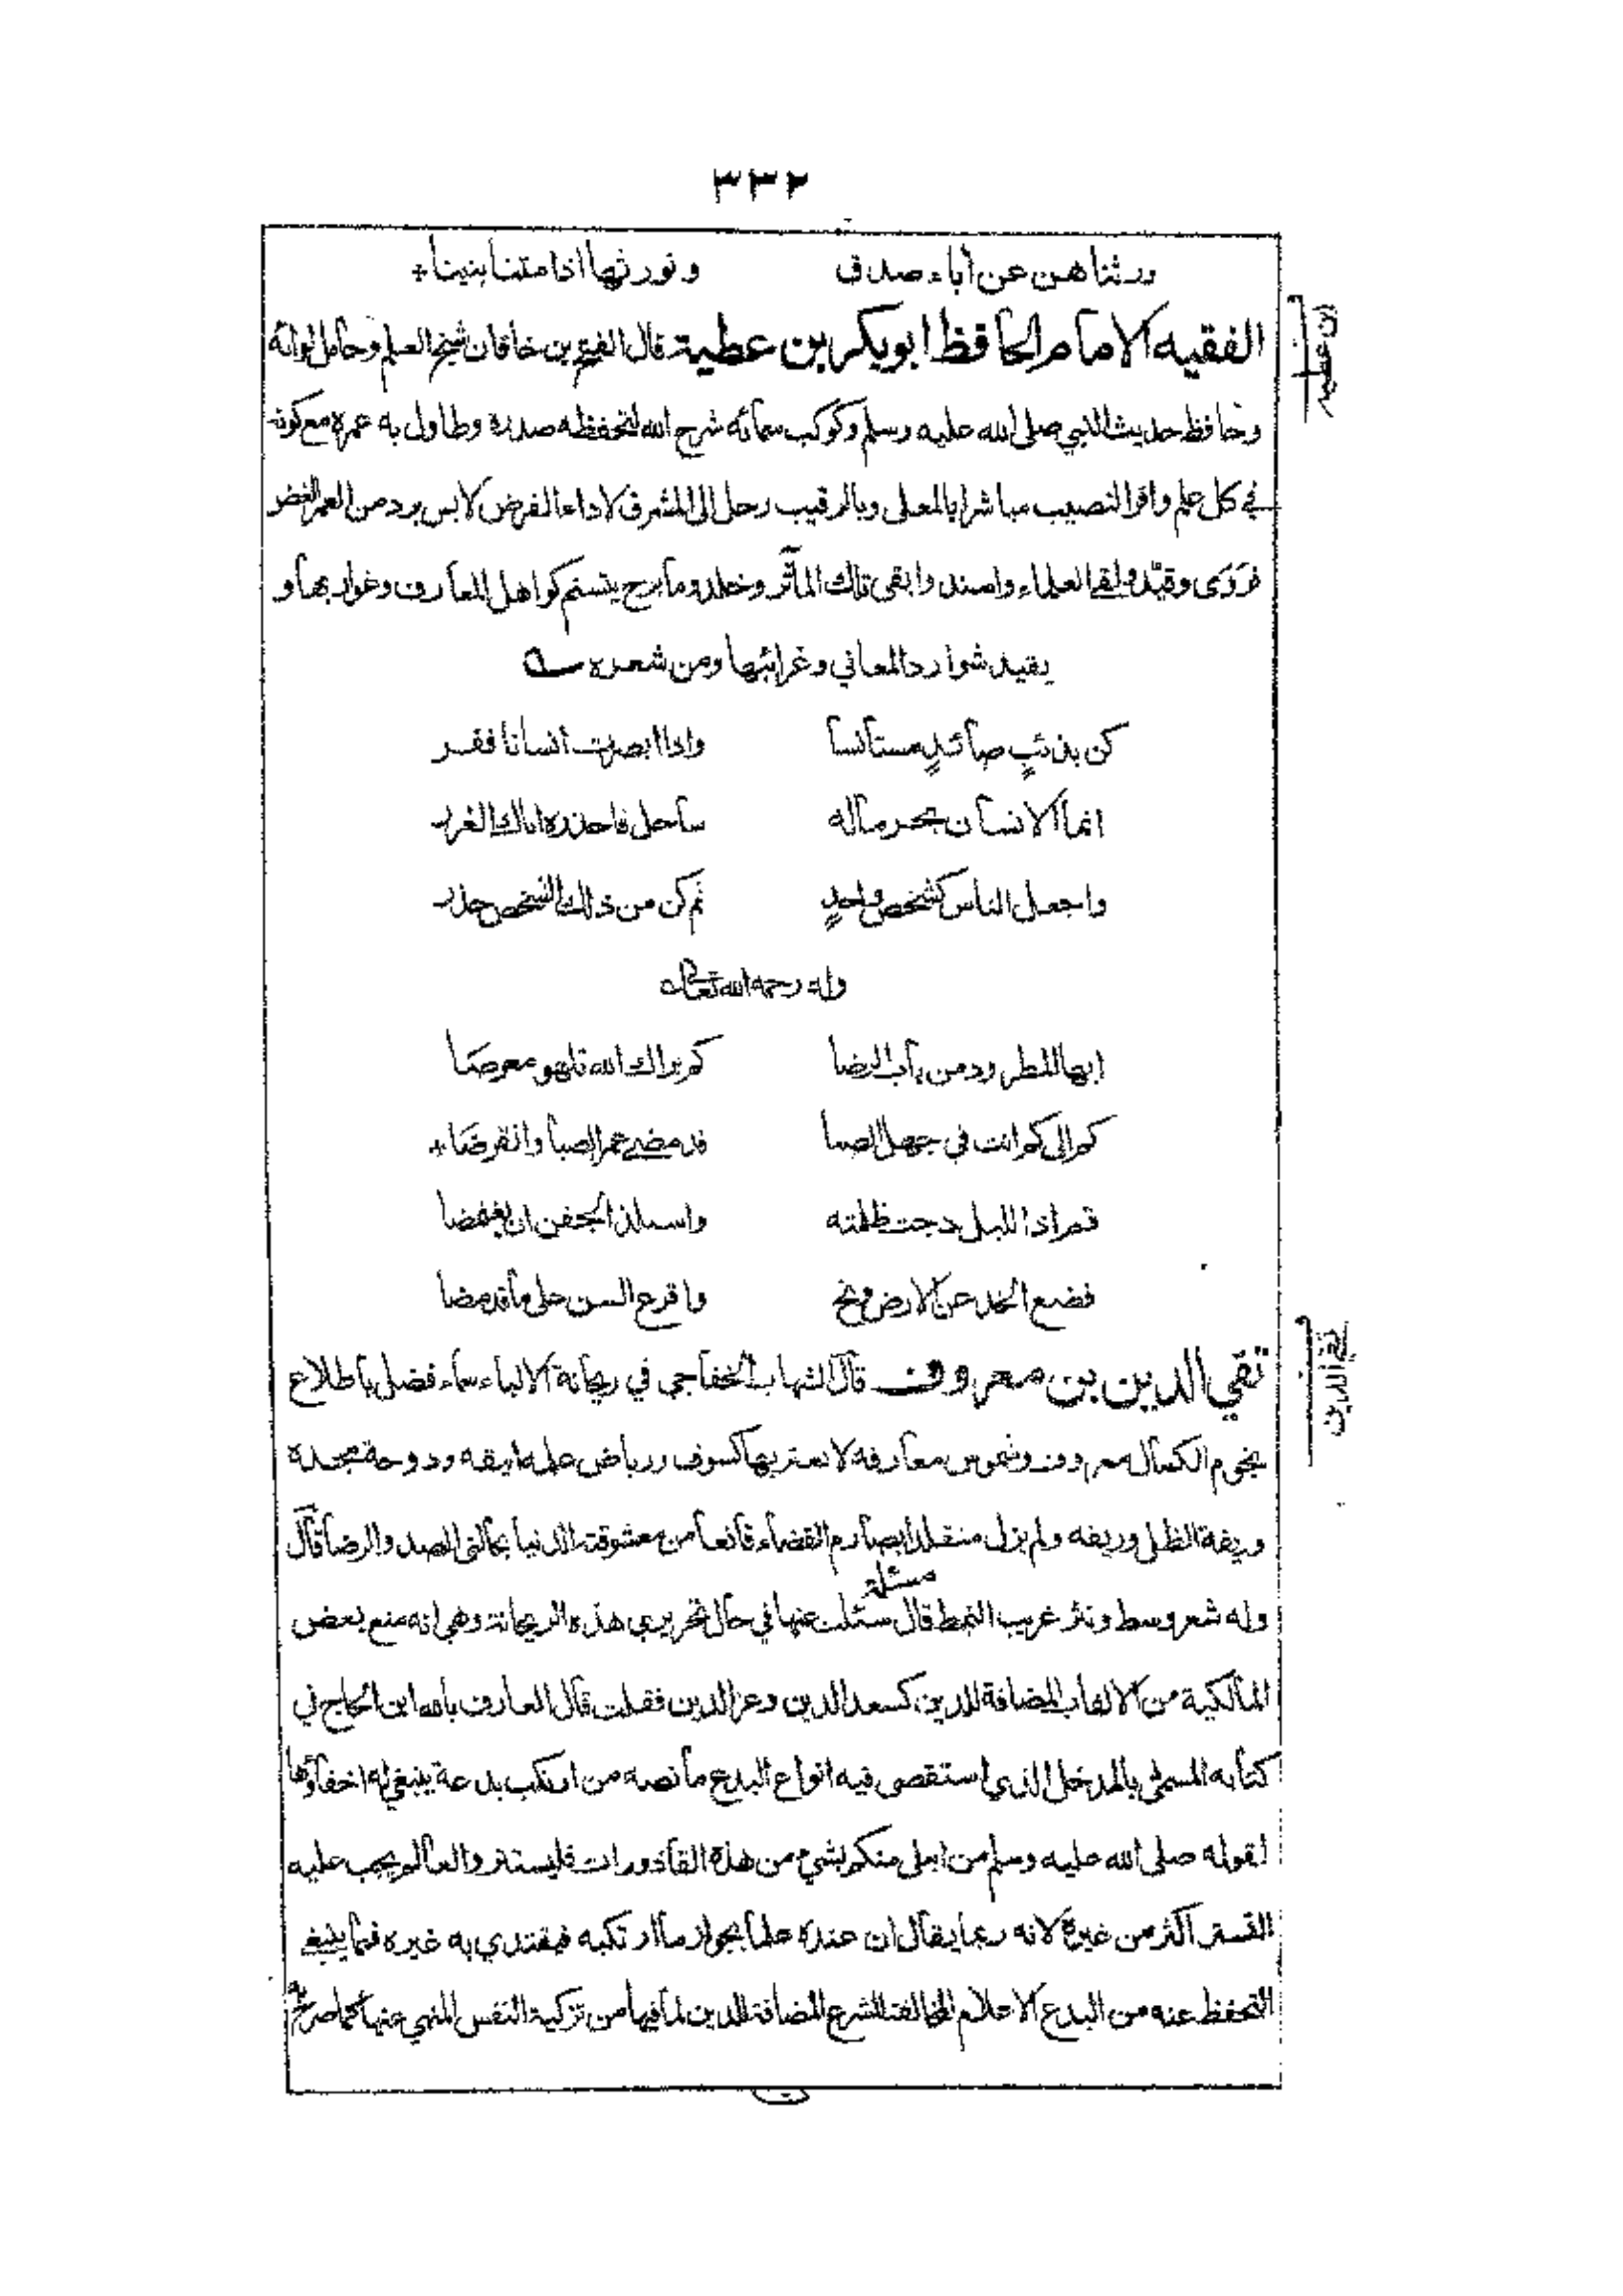 ٣٣٢
ورثناهن عن أباء صدق ونورثها اذا متنا بنينا
الفقيه الامام الحافظ ابو بكر بن عطية قال الفتح بن خاقان شيخ العلم وحامل لوائه
ابن عطيه
وحافظ حديث النبي صلى الله عليه وسلم وكوكب سمائه شرح الله لتحفظه صدره وطاول به عمره مع كونه
في كل علم وافر النصيب مباشرا بالمعلى وبالرقيب رحل الى المشرق لاداء الفرض لابس برد من العمر الغض
فروى وقيّد ولقي العلماء واسند وابقى تلك المآثر وخلد وما برح يتسنم كواهل المعارف وغواربها و
يقيد شوارد المعاني وغرائبها ومن شعره
كن بذئبٍ صائدٍ مستأنسا واذا ابصرت انسانا ففر
انما الانسان بحر ماله ساحل فاحذره اياك الغرر
واجعل الناس كشخص واحدٍ ثم كن من ذلك الشخص حذر
وله رحمه الله تعالى
ايها المطرود من باب الرضا كم يراك الله تلهو معرضا
كم الى كم انت في جهل الصبا قد مضى عمر الصبا وانقرضا
قم اذا الليل دجت ظلمته واستلذ الجفن ان يغمضا
فضع الخد على الارض ونح واقرع السن على ما قد مضا
تقي الدين بن معروف قال الشهاب الخفاجي في ريحانة الالباء سماء فضل باطلاع
تقي الدين
نجوم الكمال معروف وشموس معارفه لا يعتريها كسوف ورياض علمه انيقه ودوحة مجده
وريفة الظل وريفه ولم يزل متقلدا بصارم القضاء قانعا من معشوقته الدنيا بحالتي الصد والرضا قال
مسئلة
وله شعر وسط ونثر غريب النمط قال سئلت عنها في حال تحريري هذه الريحانة وهي انه منع بعض
المالكية من الالقاب المضافة للدين كسعد الدين وعز الدين فقلت قال العارف بالله ابن الحاج في
كتابه المسمى بالمدخل الذي استقصى فيه انواع البدع ما نصه من ارتكب بدعة ينبغي له اخفاؤها
لقوله صلى الله عليه وسلم من ابتلى منكم بشيء من هذه القاذورات فليستتر والعالم يجب عليه
التستر اكثر من غيره لانه ربما يقال ان عنده علما بجواز ما ارتكبه فيقتدي به غيره فمما ينبغي
التحفظ عنه من البدع الاعلام المخالفة للشرع المضافة للدين لما فيها من تزكية النفس المنهي عنها كما صرح به